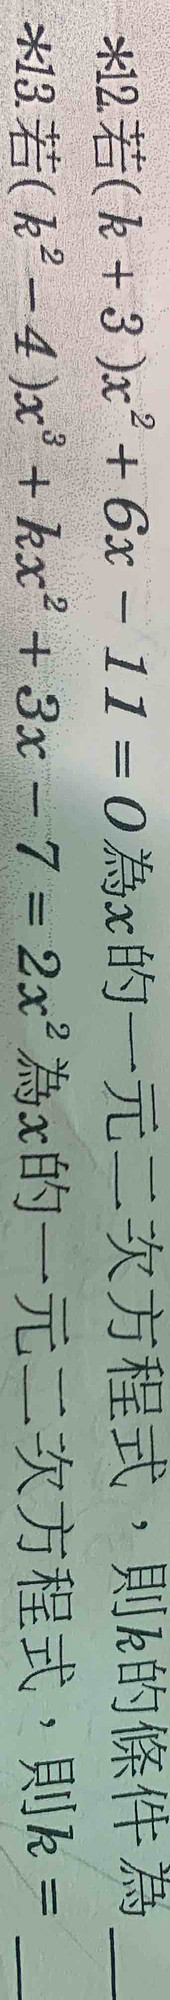 *12.若(k+3)x²+6x-11=0為x的一元二次方程式，則k的條件為＿
*13.若(k²-4)x³+kx²+3x-7=2x²為x的一元二次方程式，則k=＿